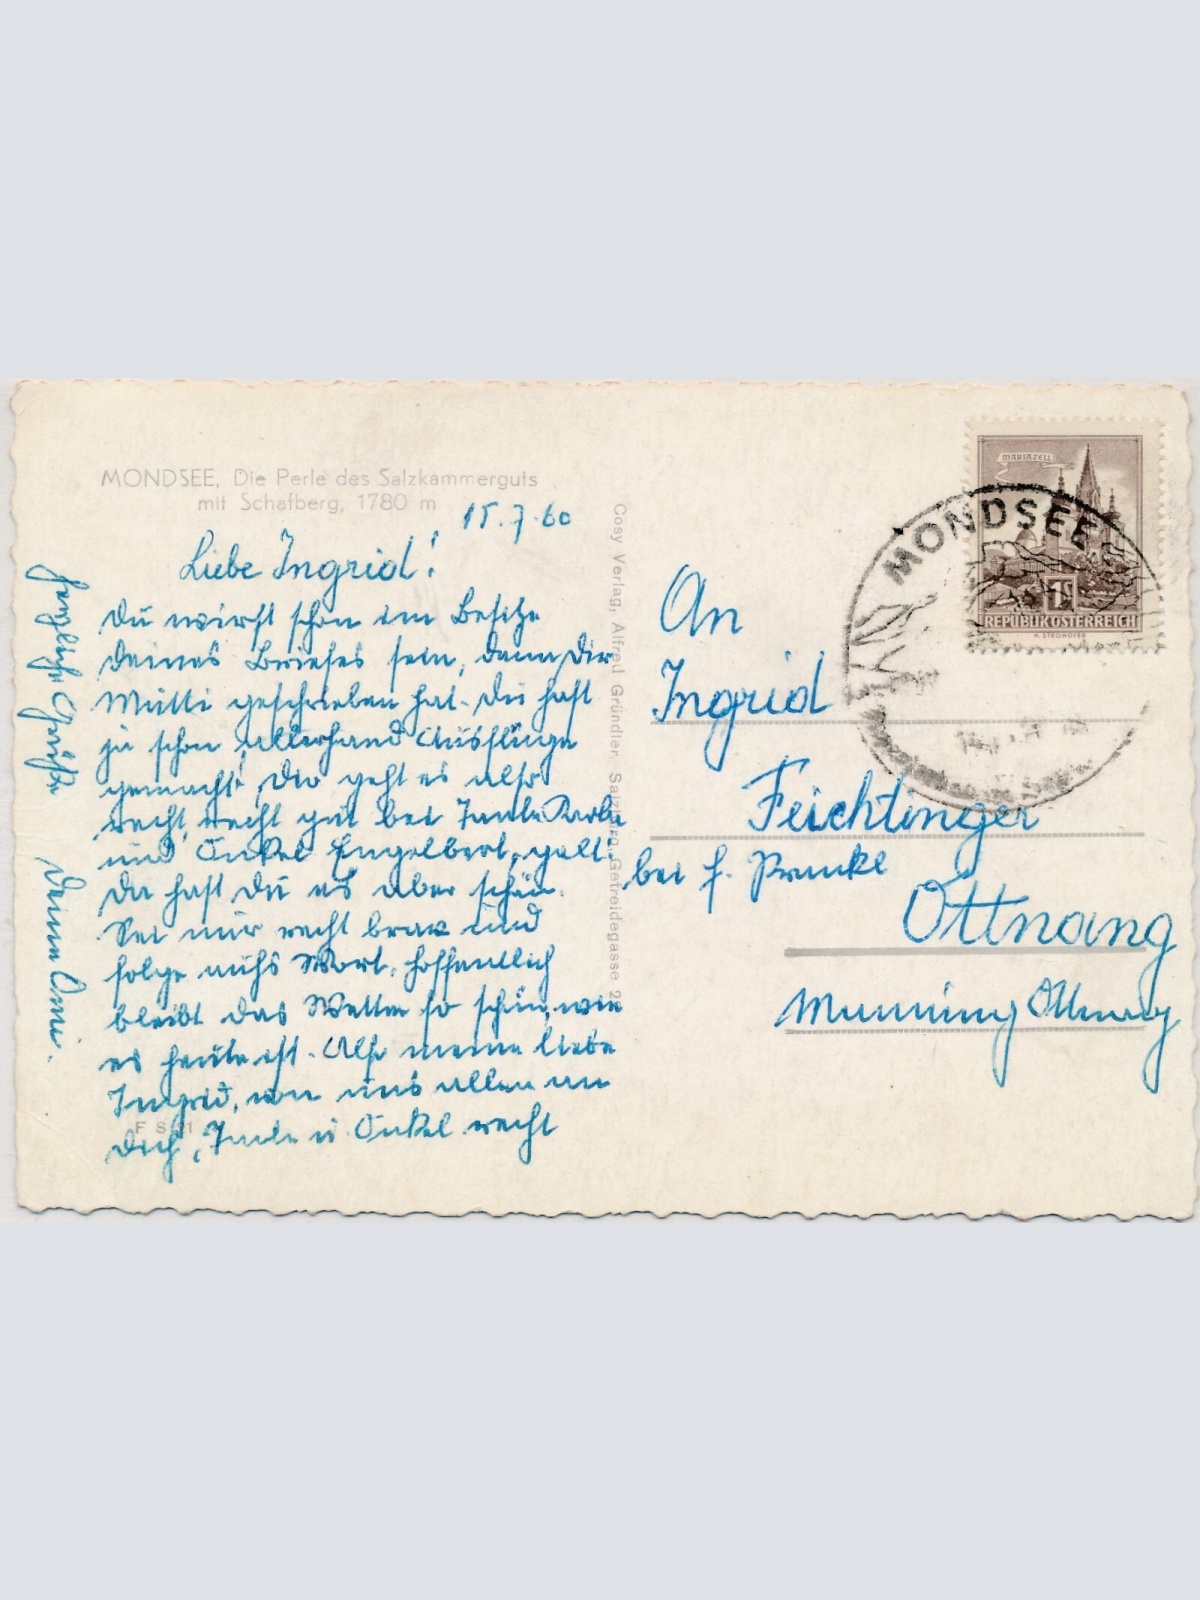 MONDSEE, Die Perle des Salzkammerguts
mit Schafberg, 1780 m
15.7.60
Liebe Ingrid!
Du wirst schon im Besitze
deines Briefes sein, denn Dir
Mutti geschrieben hat. Du hast
ja schon allerhand Ausflüge
gemacht, Dir geht es also
recht, recht gut bei Tante Karla
und Onkel Engelbert, gelt.
Da hast Du es aber schön.
Sei nur recht brav und
folge aufs Wort, hoffentlich
bleibt das Wetter so schön, wie
es heute ist. Also meine liebe
Ingrid, von uns allen an
Dich, Tante u Onkel recht
herzliche Grüße
Deine Omi.
F S 1
Cosy Verlag, Alfred Gründler, Salzburg, Getreidegasse 2
MARIAZELL
1S
REPUBLIK ÖSTERREICH
H. STROHOFER
MONDSEE
An
Ingrid
Feichtinger
bei f.
Ottnang
Ottnang